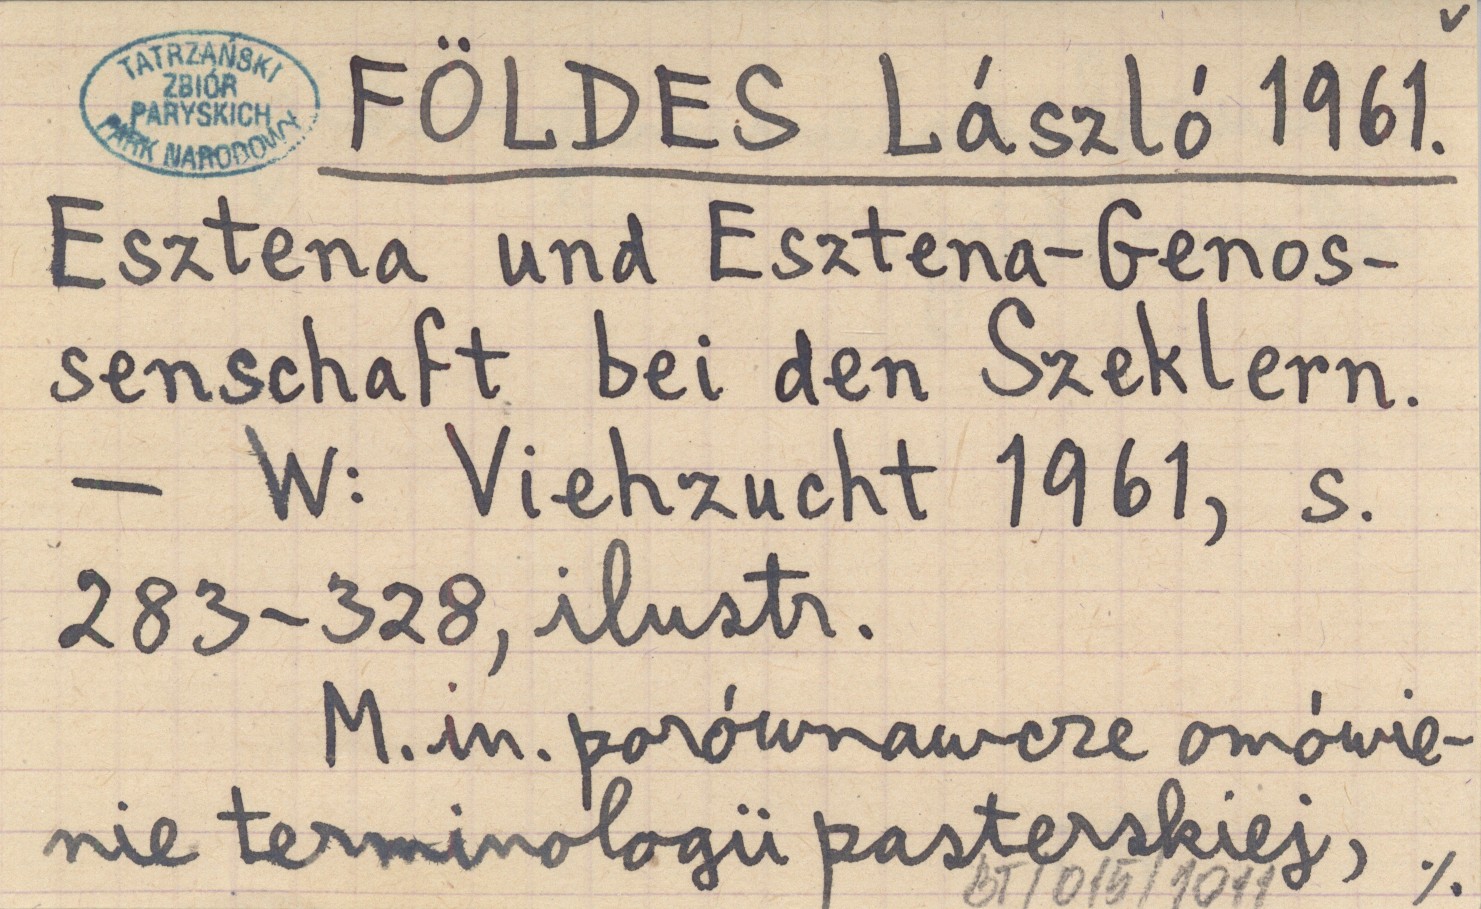 v
TATRZAŃSKI
ZBIÓR
PARYSKICH
PARK NARODOWY
FÖLDES László 1961.
Esztena und Esztena-Genos-
senschaft bei den Szeklern.
— W: Viehzucht 1961, s.
283-328, ilustr.
M. in. porównawcze omówie-
nie terminologii pasterskiej, ./.
BT/015/1011